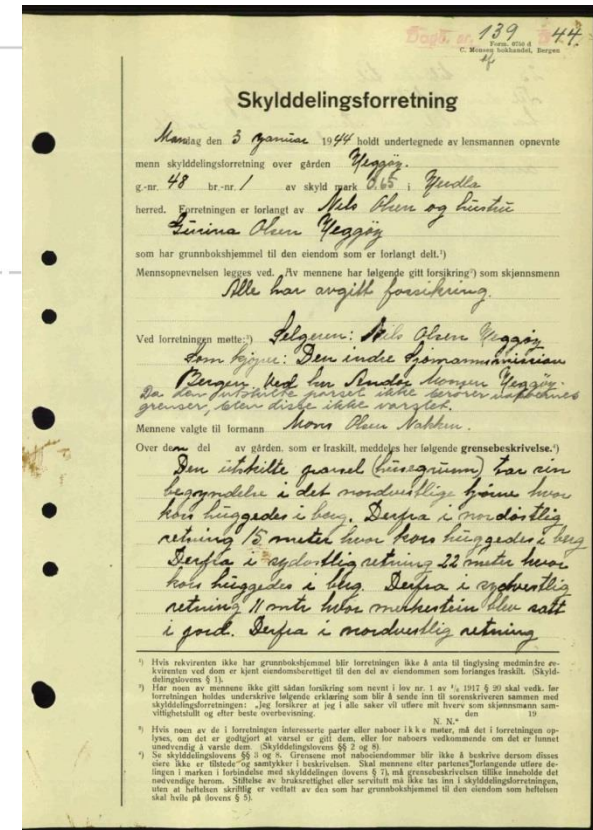 Dagb. nr. 139 1944
Form. 6750 d
C. Monsen bokhandel, Bergen
Skylddelingsforretning
Mandag den 3 januar 1944 holdt undertegnede av lensmannen opnevnte
menn skylddelingsforretning over gården Yeggøy.
g.-nr. 48 br.-nr. 1 av skyld mark 0.65 i
herred. Forretningen er forlangt av Nils Olsen og hustru
Gurina Olsen Yeggøy
som har grunnbokshjemmel til den eiendom som er forlangt delt.¹)
Mennsopnevnelsen legges ved. Av mennene har følgende gitt forsikring²) som skjønnsmenn
Alle har avgitt forsikring.
Ved forretningen møtte:³) Selgeren: Nils Olsen Yeggøy
Som kjøper: Den indre Sjømannsmission
Bergen ved herr Monsen Yeggøy.
Da den utskilte parsel ikke berører naboernes
grenser, blev disse ikke varslet.
Mennene valgte til formann Mons Olsen Nakken.
Over den del av gården, som er fraskilt, meddeles her følgende grensebeskrivelse.⁴)
Den utskilte parsel (husegrunn) tar sin
begyndelse i det nordvestlige hjørne hvor
kors huggedes i berg. Derfra i nordøstlig
retning 15 meter hvor kors huggedes i berg
Derfra i sydøstlig retning 22 meter hvor
kors huggedes i berg. Derfra i sydvestlig
retning 11 mtr hvor merkestein blev satt
i jord. Derfra i nordvestlig retning
¹) Hvis rekvirenten ikke har grunnbokshjemmel blir forretningen ikke å anta til tinglysing medmindre re-
kvirenten ved dom er kjent eiendomsberettiget til den del av eiendommen som forlanges fraskilt. (Skyld-
delingslovens § 1).
²) Har noen av mennene ikke gitt sådan forsikring som nevnt i lov nr. 1 av 1917 § 20 skal vedk. før
forretningen holdes underskrive følgende erklæring som blir å sende inn til sorenskriveren sammen med
skylddelingsforretningen: „Jeg forsikrer at jeg i alle saker vil utføre mitt hverv som skjønnsmann sam-
vittighetsfullt og efter beste overbevisning.
den 19
N. N.“
³) Hvis noen av de i forretningen interesserte parter eller naboer ikke møter, må det i forretningen op-
lyses, om det er godtgjort at varsel er gitt dem, eller for naboers vedkommende om det er funnet
unødvendig å varsle dem. (Skylddelingslovens §§ 2 og 8).
⁴) Se skylddelingslovens §§ 3 og 8. Grensene mot naboeiendommer blir ikke å beskrive dersom disses
eiere ikke er tilstede og samtykker i beskrivelsen. Skal mennene efter partenes forlangende utføre de-
lingen i marken i forbindelse med skylddelingen (lovens § 7), må grensebeskrivelsen tillike inneholde det
nødvendige herom. Stiftelse av bruksrettighet eller servitutt må ikke tas inn i skylddelingsforretningen,
uten at heftelsen skriftlig er vedtatt av den som har grunnbokshjemmel til den eiendom som heftelsen
skal hvile på (lovens § 5).